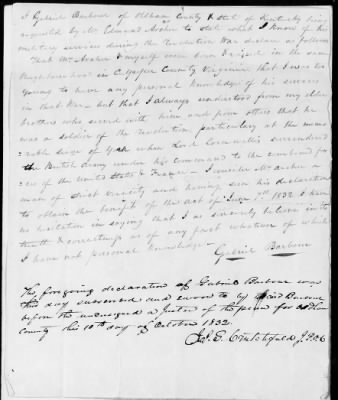 I Gabriel Barbour of Oldham County & State of Kentucky being
requested by Mr. Edmund Archer to state what I know of his
military services during the revolution War declare as follows
That Mr. Archer & myself were born & raised in the same
Neighbourhood in Culpeper County Virginia that I was too
young to have any personal knowledge of his services
in that War but that I always understood from my elder
brothers who served with him and from others that he
was a soldier of the revolution particularly at the memo
rable siege of York when Lord Cornwallis surrendered
the British Army under his command to the combined for
ces of the United States & France - I consider Mr. Archer a
man of strict veracity and having seen his declaration
to obtain the benefit of the act of June 7th 1832 I have
no hesitation in saying that I as sincerely believe in its
truth & correctness as of any fact whatever of which
I have not personal knowledge
Gabriel Barbour
The foregoing declaration of Gabriel Barbour was
this day subscribed and sworn to by said Barbour
before the undersigned a Justice of the peace for Oldham
county this 10th day of October 1832.
S. E. Crutchfield J.P.O.C